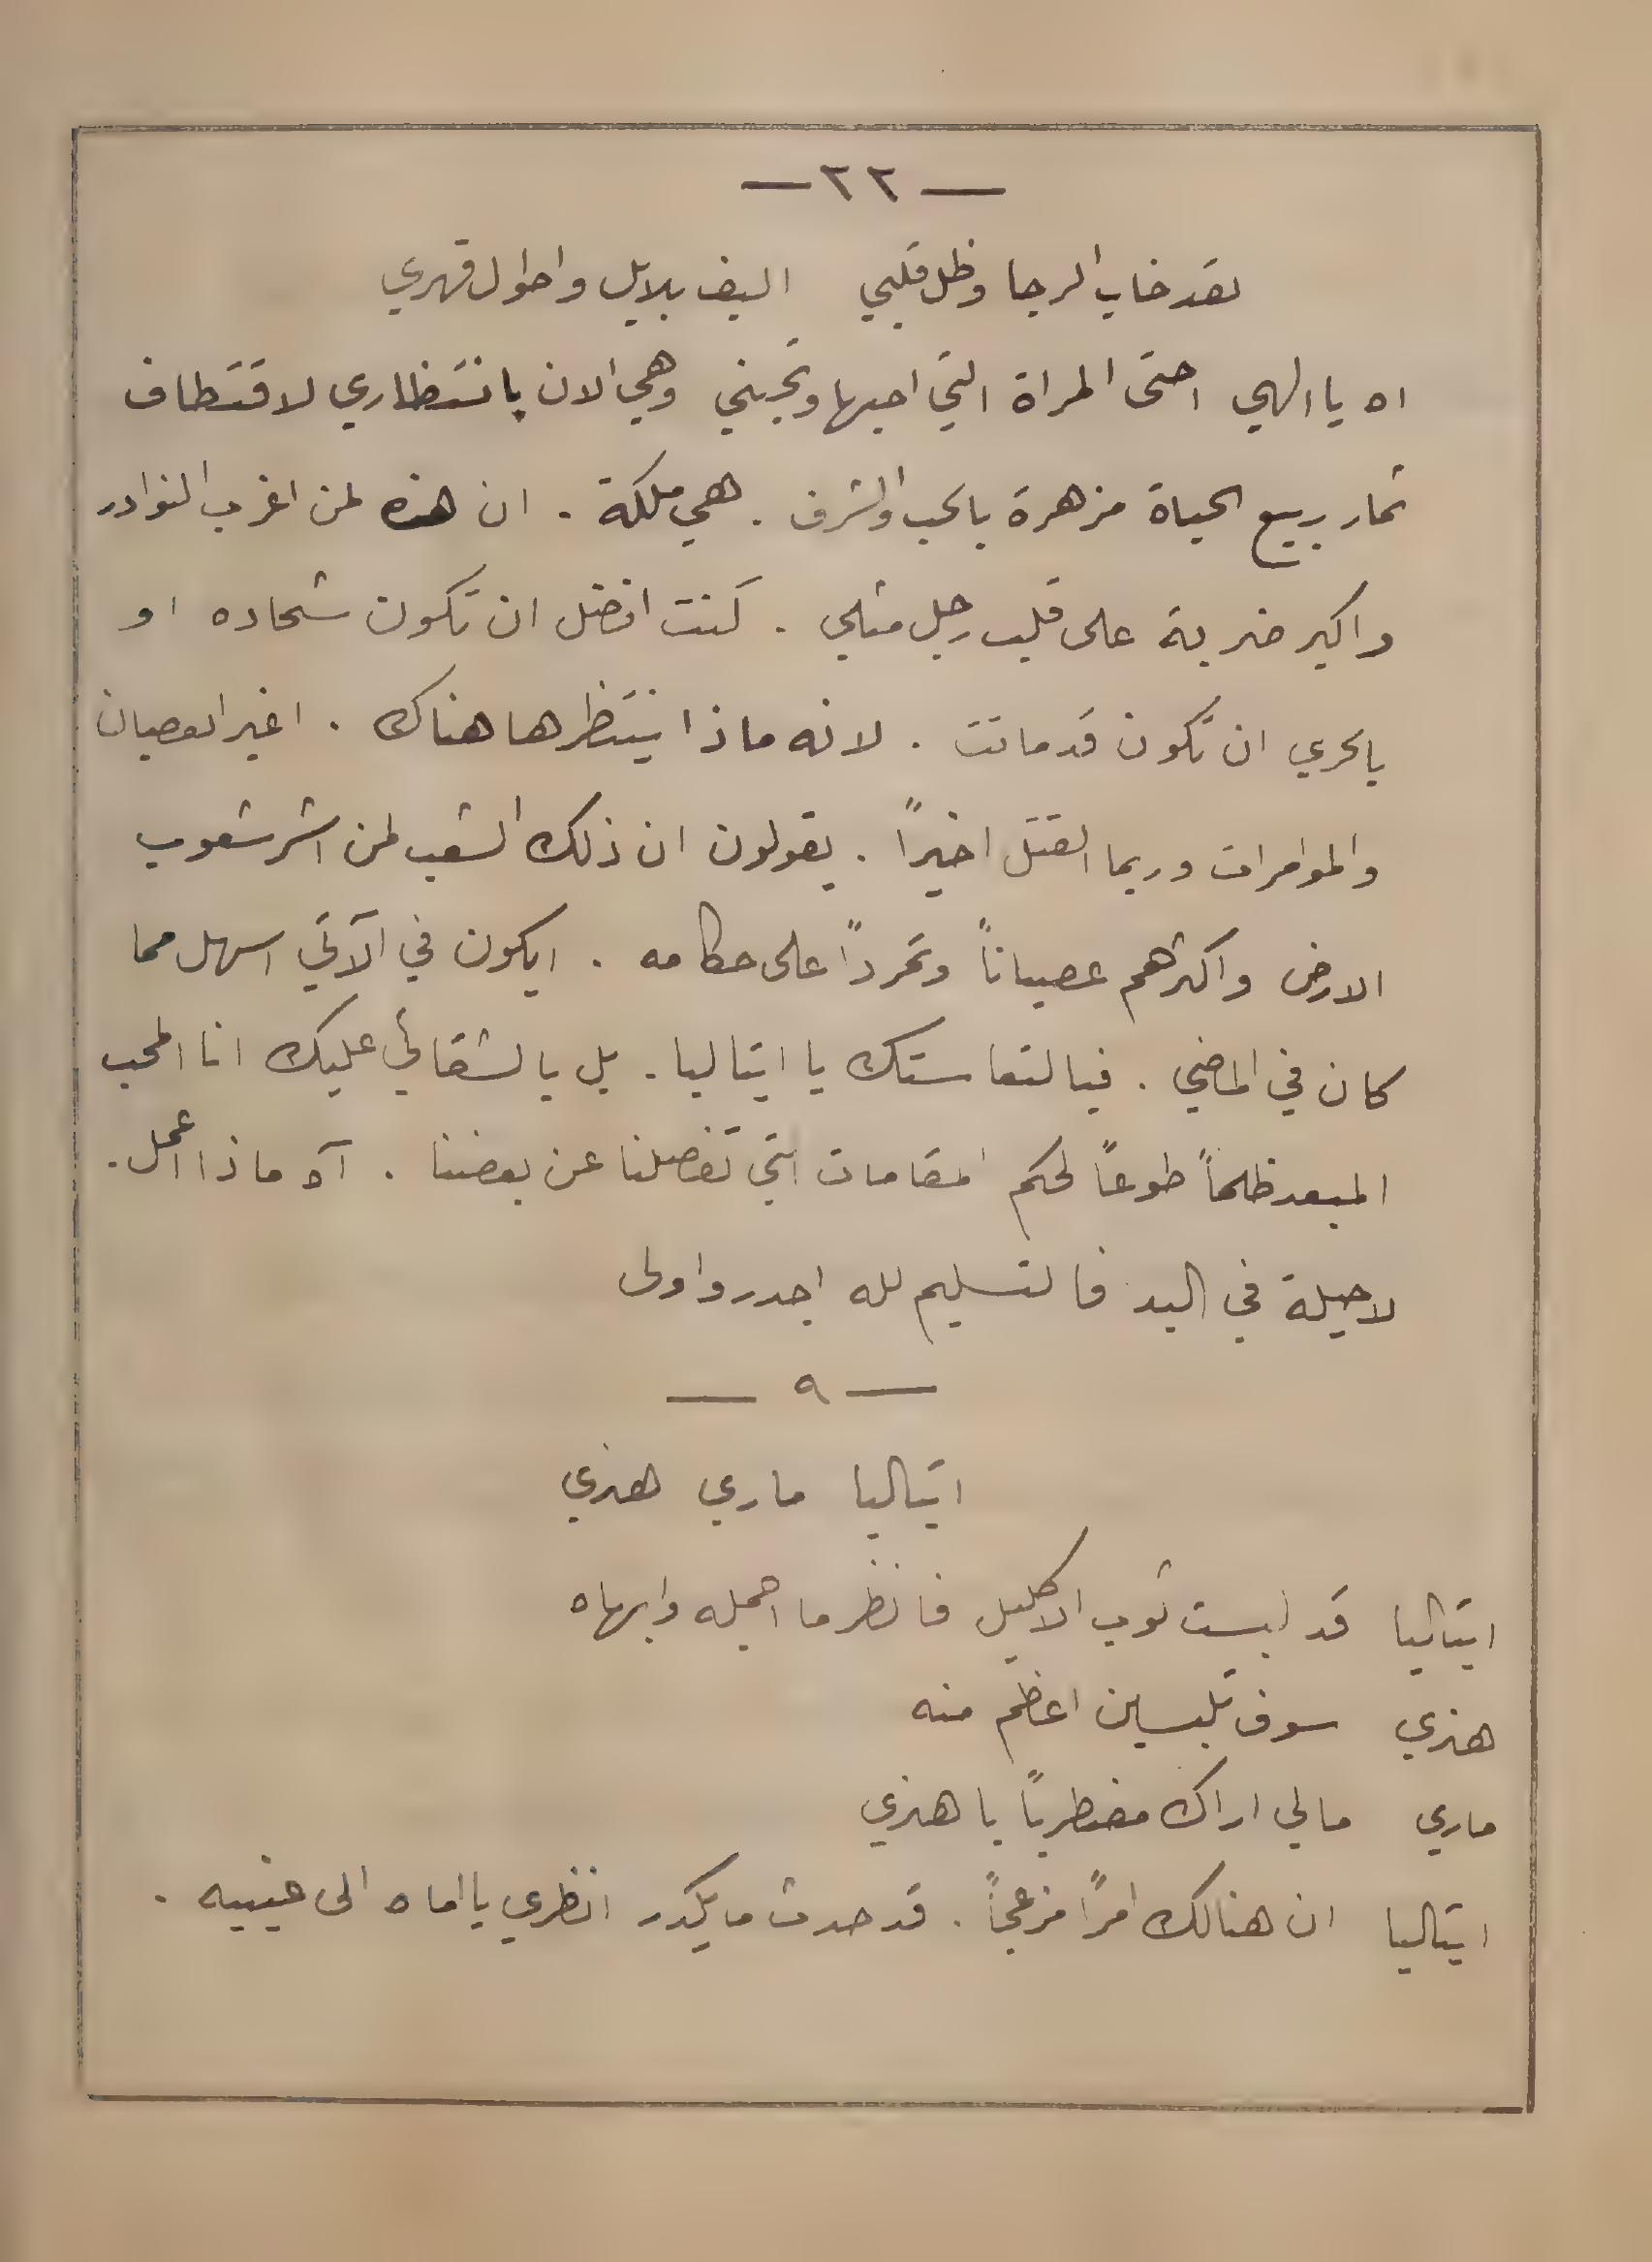 — ٢٢ —
لقد خاب الرجا وظل قلبي اليف بلابل واطول قهري
اه يا الهي احتى المراة التي احبها وتحبني وهي الان بانتظاري لاقتطاف
ثمار ربيع الحياة مزهرة بالحب والشرف . هي ملكة . ان هذه لمن اغرب النوادر
واكبر ضربة على قلب رجل مثلي . كنت افضل ان تكون شحاده او
بالحري ان تكون قد ماتت . لانه ماذا ينتظرها هناك . اغير العصيان
والموامرات وربما القتل اخيراً . يقولون ان ذلك الشعب لمن اشر شعوب
الارض واكثرهم عصياناً وتمرداً على حكامه . ايكون في الآتي اسهل مما
كان في الماضي . فيالتعاستك يا ايتاليا . بل يالشقائي عليك انا المحب
المبعد ظلماً طوعاً لحكم المقامات التي تفصلنا عن بعضنا . آه ماذا اعمل .
لا حيلة في اليد فالتسليم لله اجدر واولى
— ٩ —
ايتاليا ماري هنري
ايتاليا قد لبست ثوب الاكليل فانظر ما اجمله وابهاه
هنري سوف تلبسين اعظم منه
ماري مالي اراك مضطرباً يا هنري
ايتاليا ان هنالك امراً مزعجاً . قد حدث ما يكدر انظري يا اماه الى عينيه .